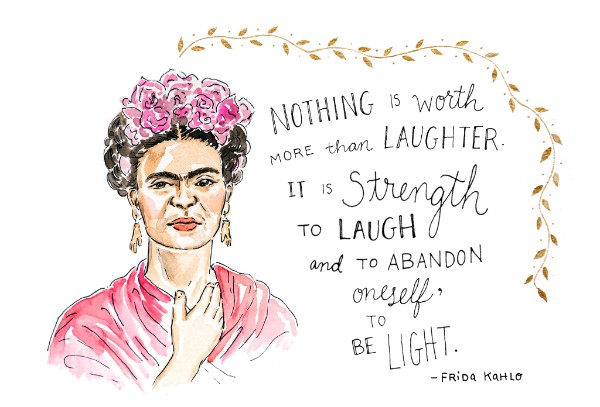 NOTHING IS worth
MORE than LAUGHTER.
IT IS Strength
TO LAUGH
and TO ABANDON
oneself,
TO
BE LIGHT.
-FRiDA KAHLO